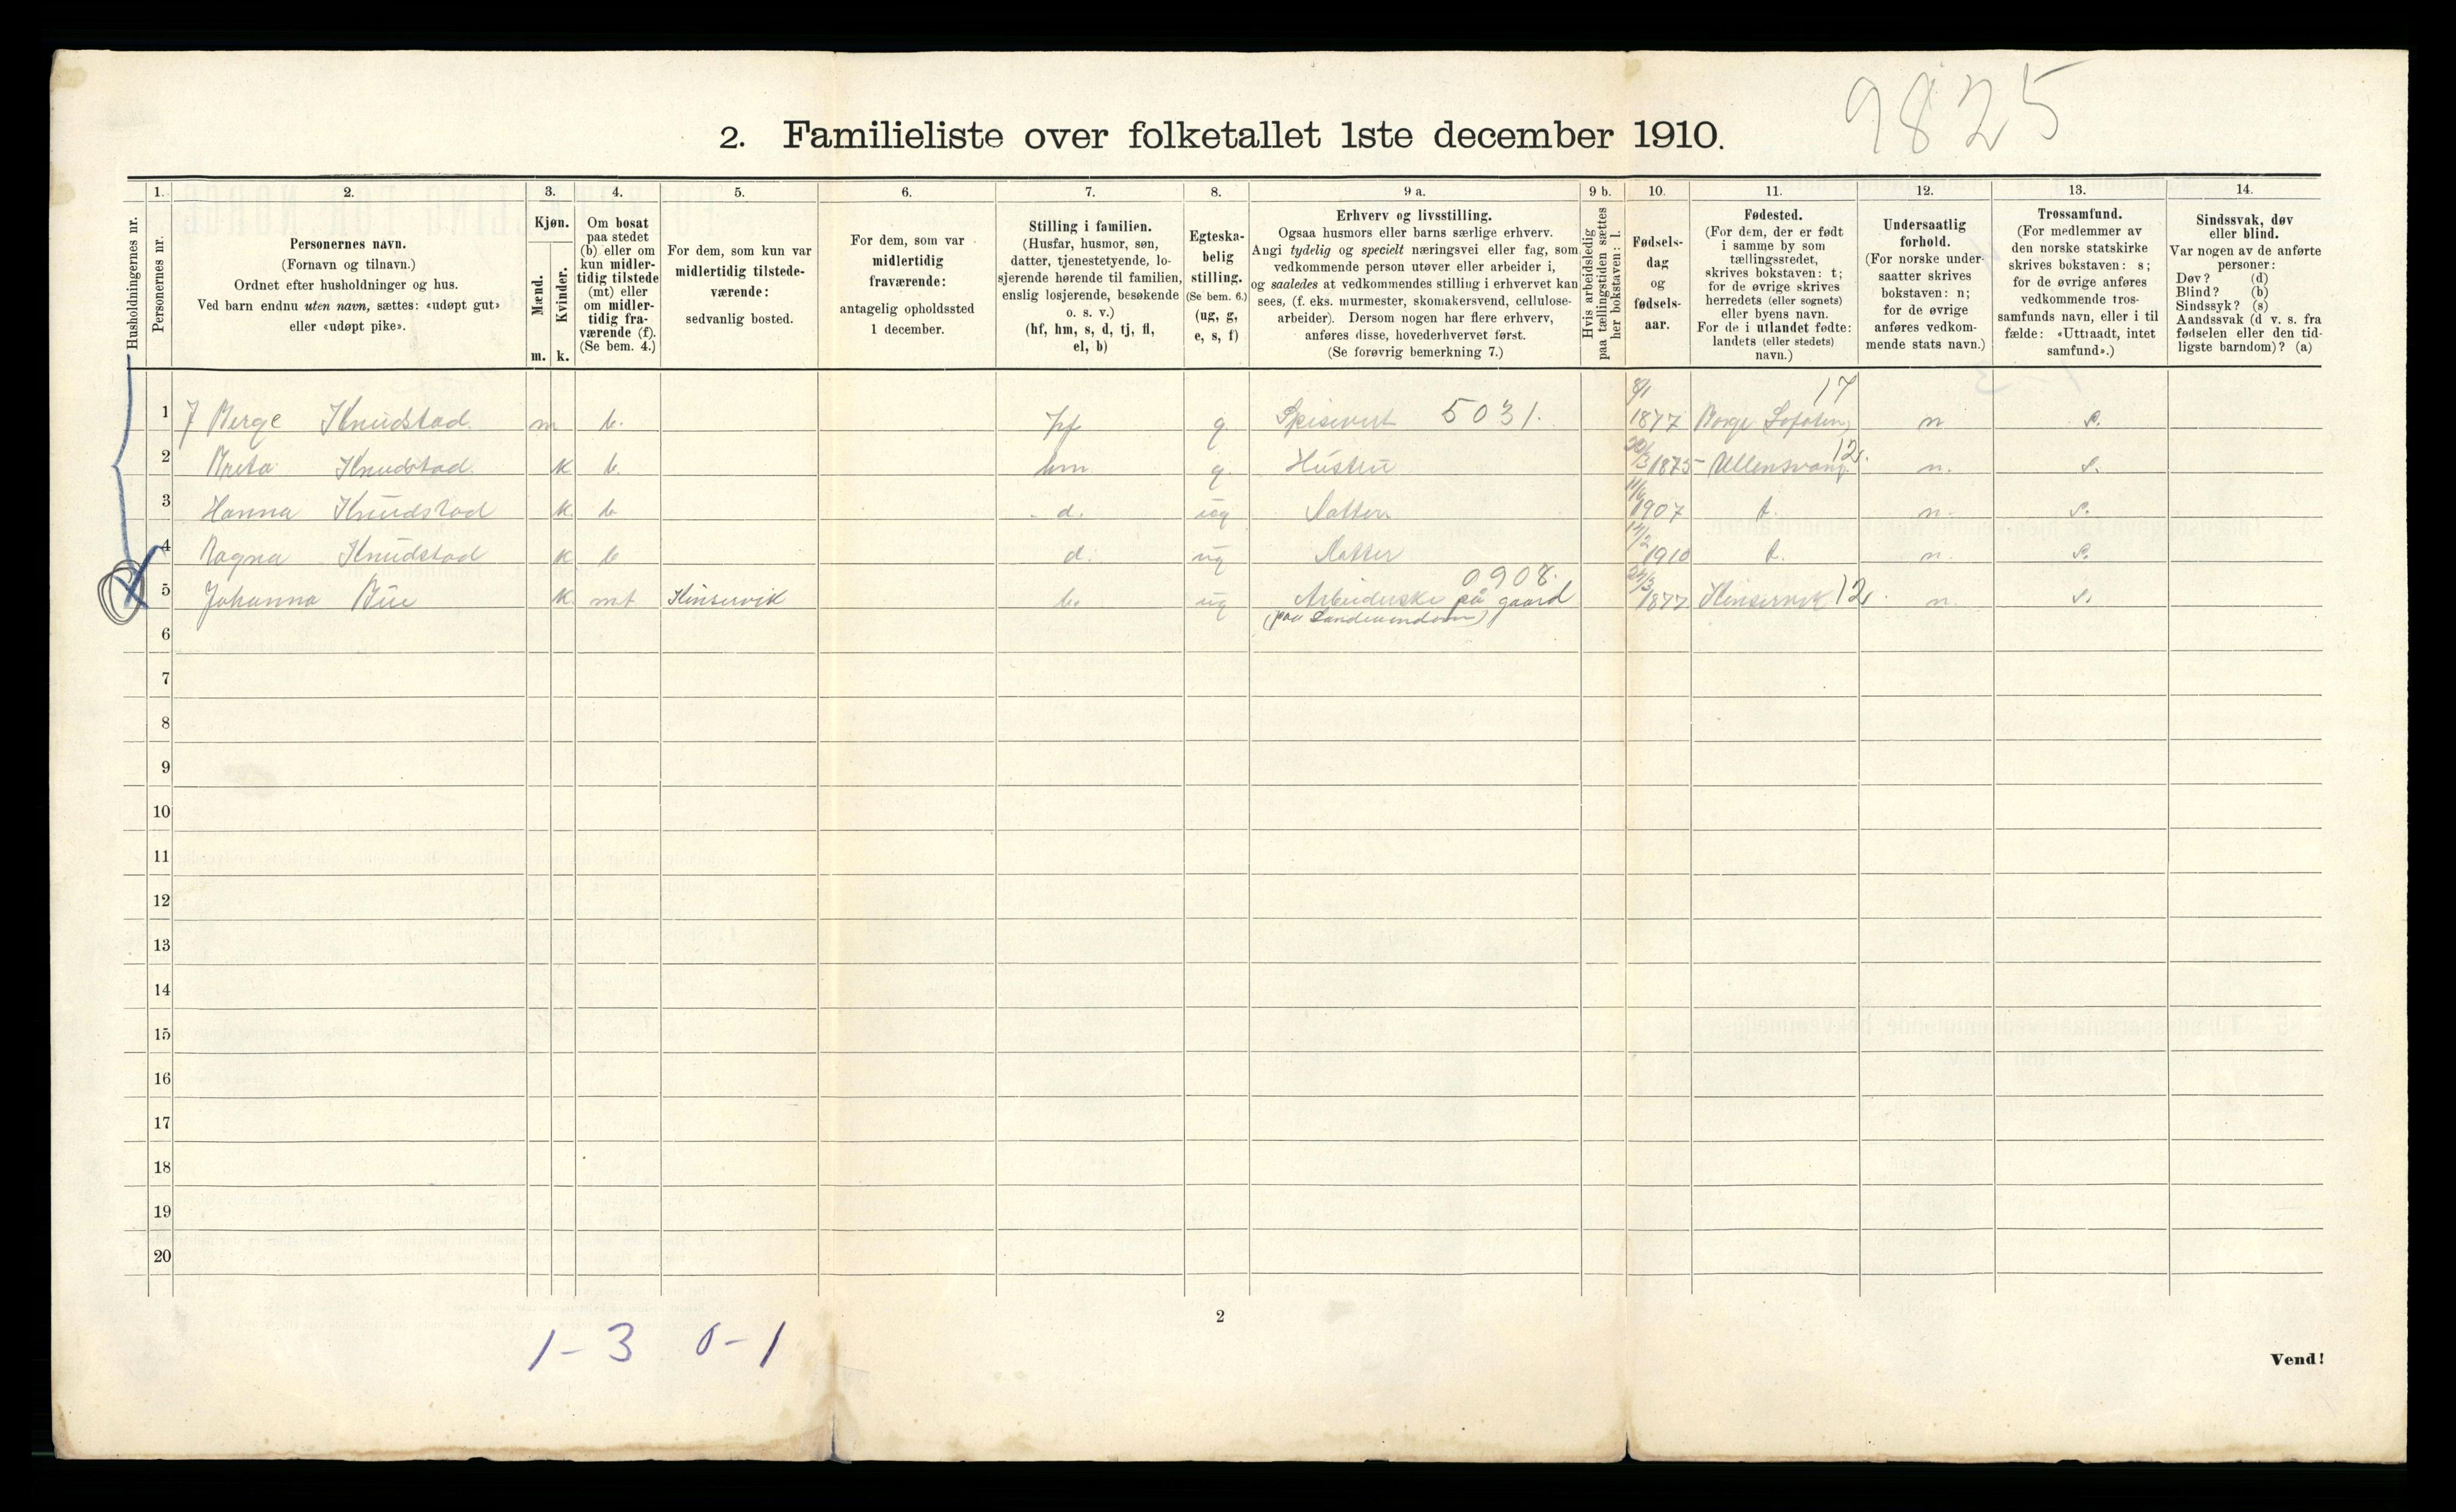 9825
2. Familieliste over folketallet 1ste december 1910.
Husholdningernes nr.
1.
Personernes nr.
2.
Personernes navn.
(Fornavn og tilnavn.)
Ordnet efter husholdninger og hus.
Ved barn endnu uten navn, sættes: «udøpt gut»
eller «udøpt pike».
3.
Kjøn.
Mænd.
Kvinder.
m. k.
4.
Om bosat
paa stedet
(b) eller om
kun midler-
tidig tilstede
(mt) eller
om midler-
tidig fra-
værende (f).
(Se bem. 4.)
5.
For dem, som kun var
midlertidig tilstede-
værende:
sedvanlig bosted.
6.
For dem, som var
midlertidig
fraværende:
antagelig opholdssted
1 december.
7.
Stilling i familien.
(Husfar, husmor, søn,
datter, tjenestetyende, lo-
sjerende hørende til familien,
enslig losjerende, besøkende
o. s. v.)
(hf, hm, s, d, tj, fl,
el, b)
8.
Egteska-
belig
stilling.
(Se bem. 6.)
(ug, g,
e, s, f)
9 a.
Erhverv og livsstilling.
Ogsaa husmors eller barns særlige erhverv.
Angi tydelig og specielt næringsvei eller fag, som
vedkommende person utøver eller arbeider i,
og saaledes at vedkommendes stilling i erhvervet kan
sees, (f. eks. murmester, skomakersvend, cellulose-
arbeider). Dersom nogen har flere erhverv,
anføres disse, hovederhvervet først.
(Se forøvrig bemerkning 7.)
9 b.
Hvis arbeidsledig
paa tællingstiden sættes
her bokstaven: l.
10.
Fødsels-
dag
og
fødsels-
aar.
11.
Fødested.
(For dem, der er født
i samme by som
tællingsstedet,
skrives bokstaven: t;
for de øvrige skrives
herredets (eller sognets)
eller byens navn.
For de i utlandet fødte:
landets (eller stedets)
navn.)
12.
Undersaatlig
forhold.
(For norske under-
saatter skrives
bokstaven: n;
for de øvrige
anføres vedkom-
mende stats navn.)
13.
Trossamfund.
(For medlemmer av
den norske statskirke
skrives bokstaven: s;
for de øvrige anføres
vedkommende tros-
samfunds navn, eller i til
fælde: «Uttraadt, intet
samfund».)
14.
Sindssvak, døv
eller blind.
Var nogen av de anførte
personer:
Døv? (d)
Blind? (b)
Sindssyk? (s)
Aandssvak (d v. s. fra
fødselen eller den tid-
ligste barndom)? (a)
1 J Berge Knudstad. m b. hf g. Spisevert 5031. 8/1 1877 Borge Lofoten, 17 n s.
2 Brita Knudstad. k b. hm g. Hustru 1875 Ullensvang. 12. n. s.
3 Hanna Knudstad k. b d. ug Datter 11/6 1907 t. n. s.
4 Ragna Knudstad k b d. ug Datter 1910 t. n. s.
5 Johanna Bue k. mt Kinservik b. ug Arbeiderske på gaard 0908. 1877 Kinservik 12. n. s.
6
7
8
9
10
11
12
13
14
15
16
17
18
19
20
2
1-3 0-1
Vend!